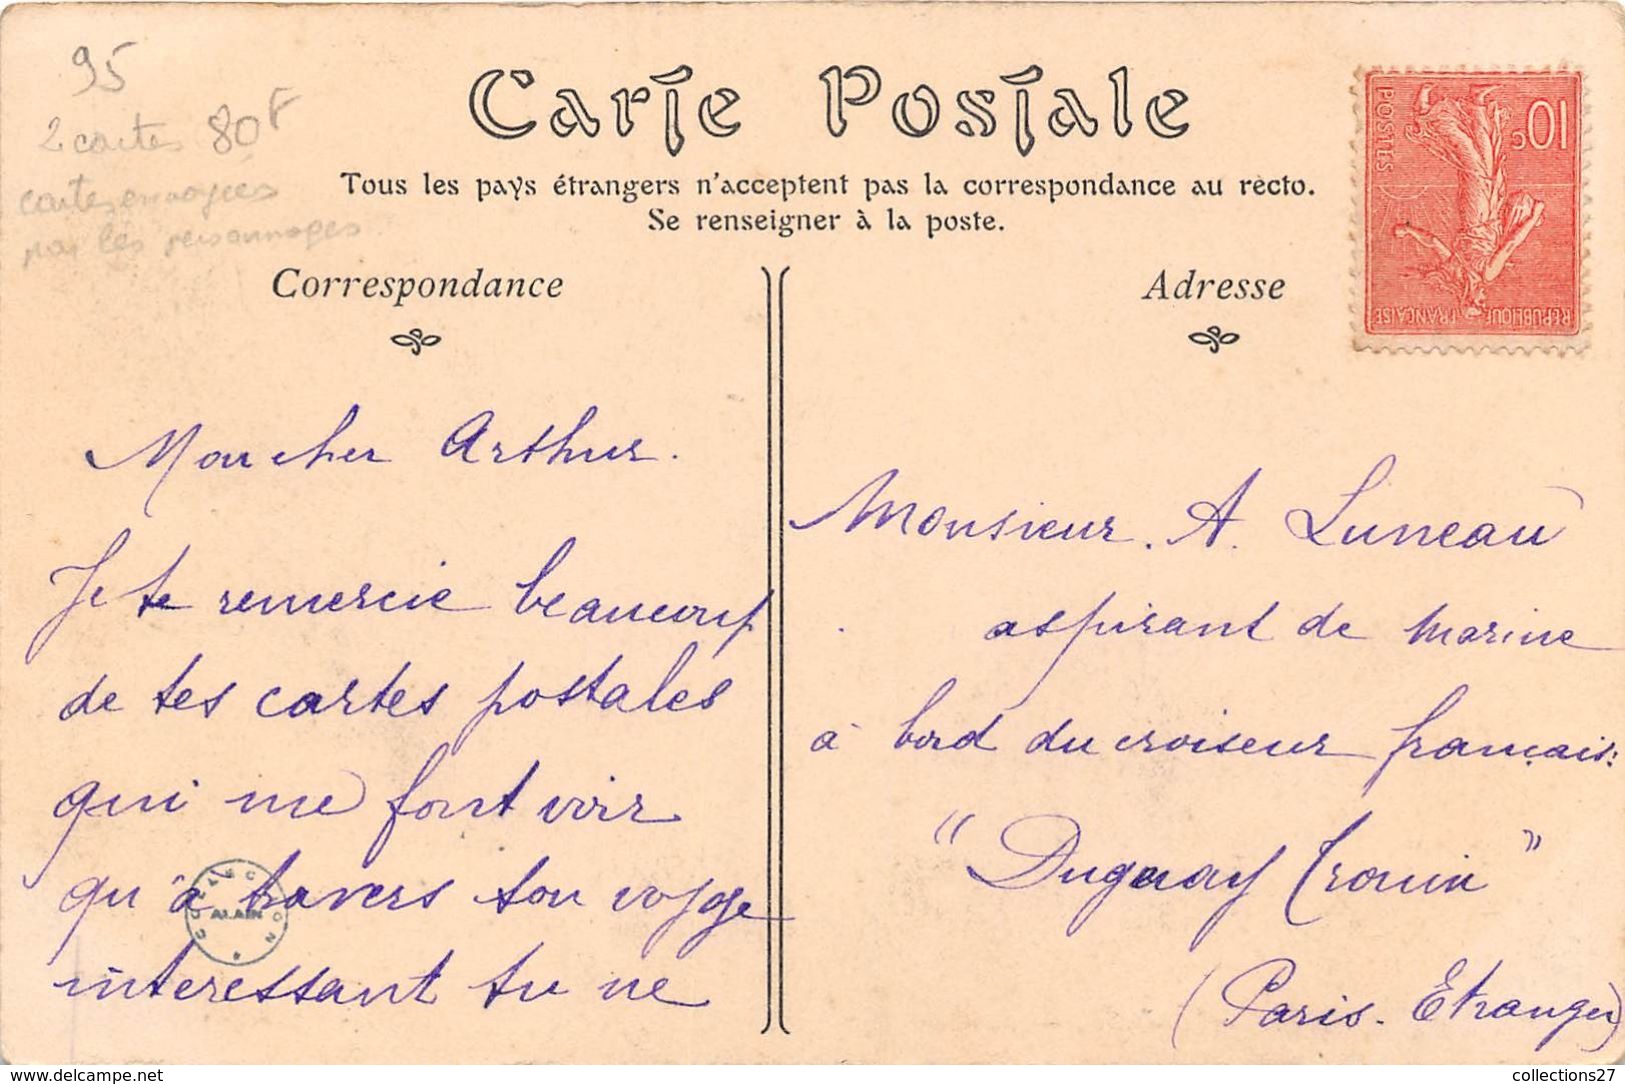 95
2 cartes 80F
cartes envoyées
par les personnages
Carte Postale
Tous les pays étrangers n'acceptent pas la correspondance au recto.
Se renseigner à la poste.
Correspondance
Mon cher Arthur.
Je te remercie beaucoup
de tes cartes postales
qui me font voir
qu'à travers ton voyage
interessant tu ne
COLLECTION
ALAIN
Adresse
10c
POSTES
REPUBLIQUE FRANÇAISE
Monsieur. A. Luneau
aspirant de marine
à bord du croiseur français:
"Duguay Trouin"
(Paris. Etranger)
delcampe.net
collections27